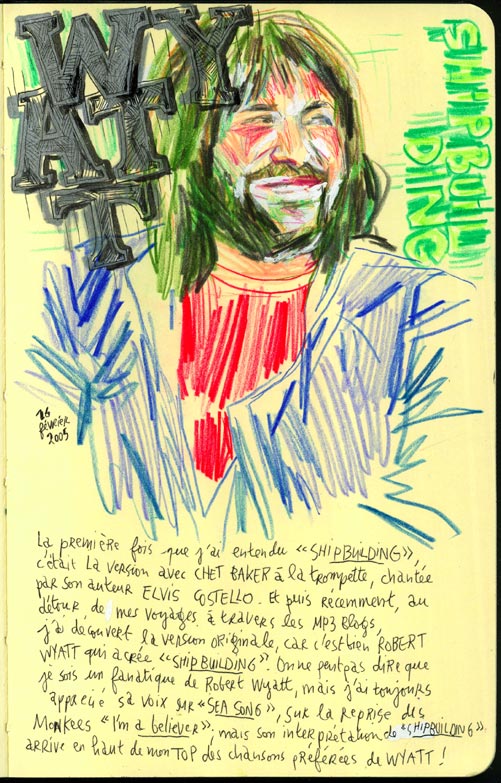 WY
AT
T
SHIPBUIL
DING
16
février
2005
La première fois que j'ai entendu «SHIPBUILDING»,
c'était la version avec CHET BAKER à la trompette, chantée
par son auteur ELVIS COSTELLO. Et puis récemment, au
détour de mes voyages à travers les MP3 Blogs,
j'ai découvert la version originale, car c'est bien ROBERT
WYATT qui a créé «SHIPBUILDING». On ne peut pas dire que
je sois un fanatique de Robert Wyatt, mais j'ai toujours
apprécié sa voix sur «SEA SONG», sur la reprise des
Monkees «I'm a believer»; mais son interprétation de «SHIPBUILDING»
arrive en haut de mon TOP des chansons préférées de WYATT !